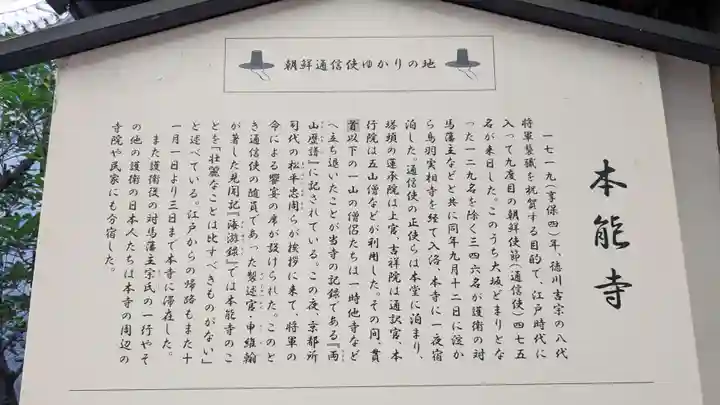 朝鮮通信使ゆかりの地
本能寺
一七一九(享保四)年、徳川吉宗の八代
将軍襲職を祝賀する目的で、江戸時代に
入って九度目の朝鮮使節(通信使)四七五
名が来日した。このうち大坂どまりとな
った一二九名を除く三四六名が護衛の対
馬藩主などと共に同年九月十二日に淀か
ら鳥羽実相寺を経て入洛、本寺に一夜宿
泊した。通信使の正使らは本堂に泊まり、
塔頭の運承院は上官、吉祥院は通訳官、本
行院は五山僧などが利用した。その間、貫
首以下の一山の僧侶たちは一時他寺など
へ立ち退いたことが当寺の記録である『両
山歴譜』に記されている。この夜、京都所
司代の松平忠周らが挨拶に来て、将軍の
命による饗宴の席が設けられた。このと
き通信使の随員であった製述官・申維翰
が著した見聞記『海游録』では本能寺のこ
とを「壮麗なことは比すべきものがない」
と述べている。江戸からの帰路もまた十
一月一日より三日まで本寺に滞在した。
また護衛役の対馬藩主宗氏の一行やそ
の他の護衛の日本人たちは本寺の周辺の
寺院や民家にも分宿した。